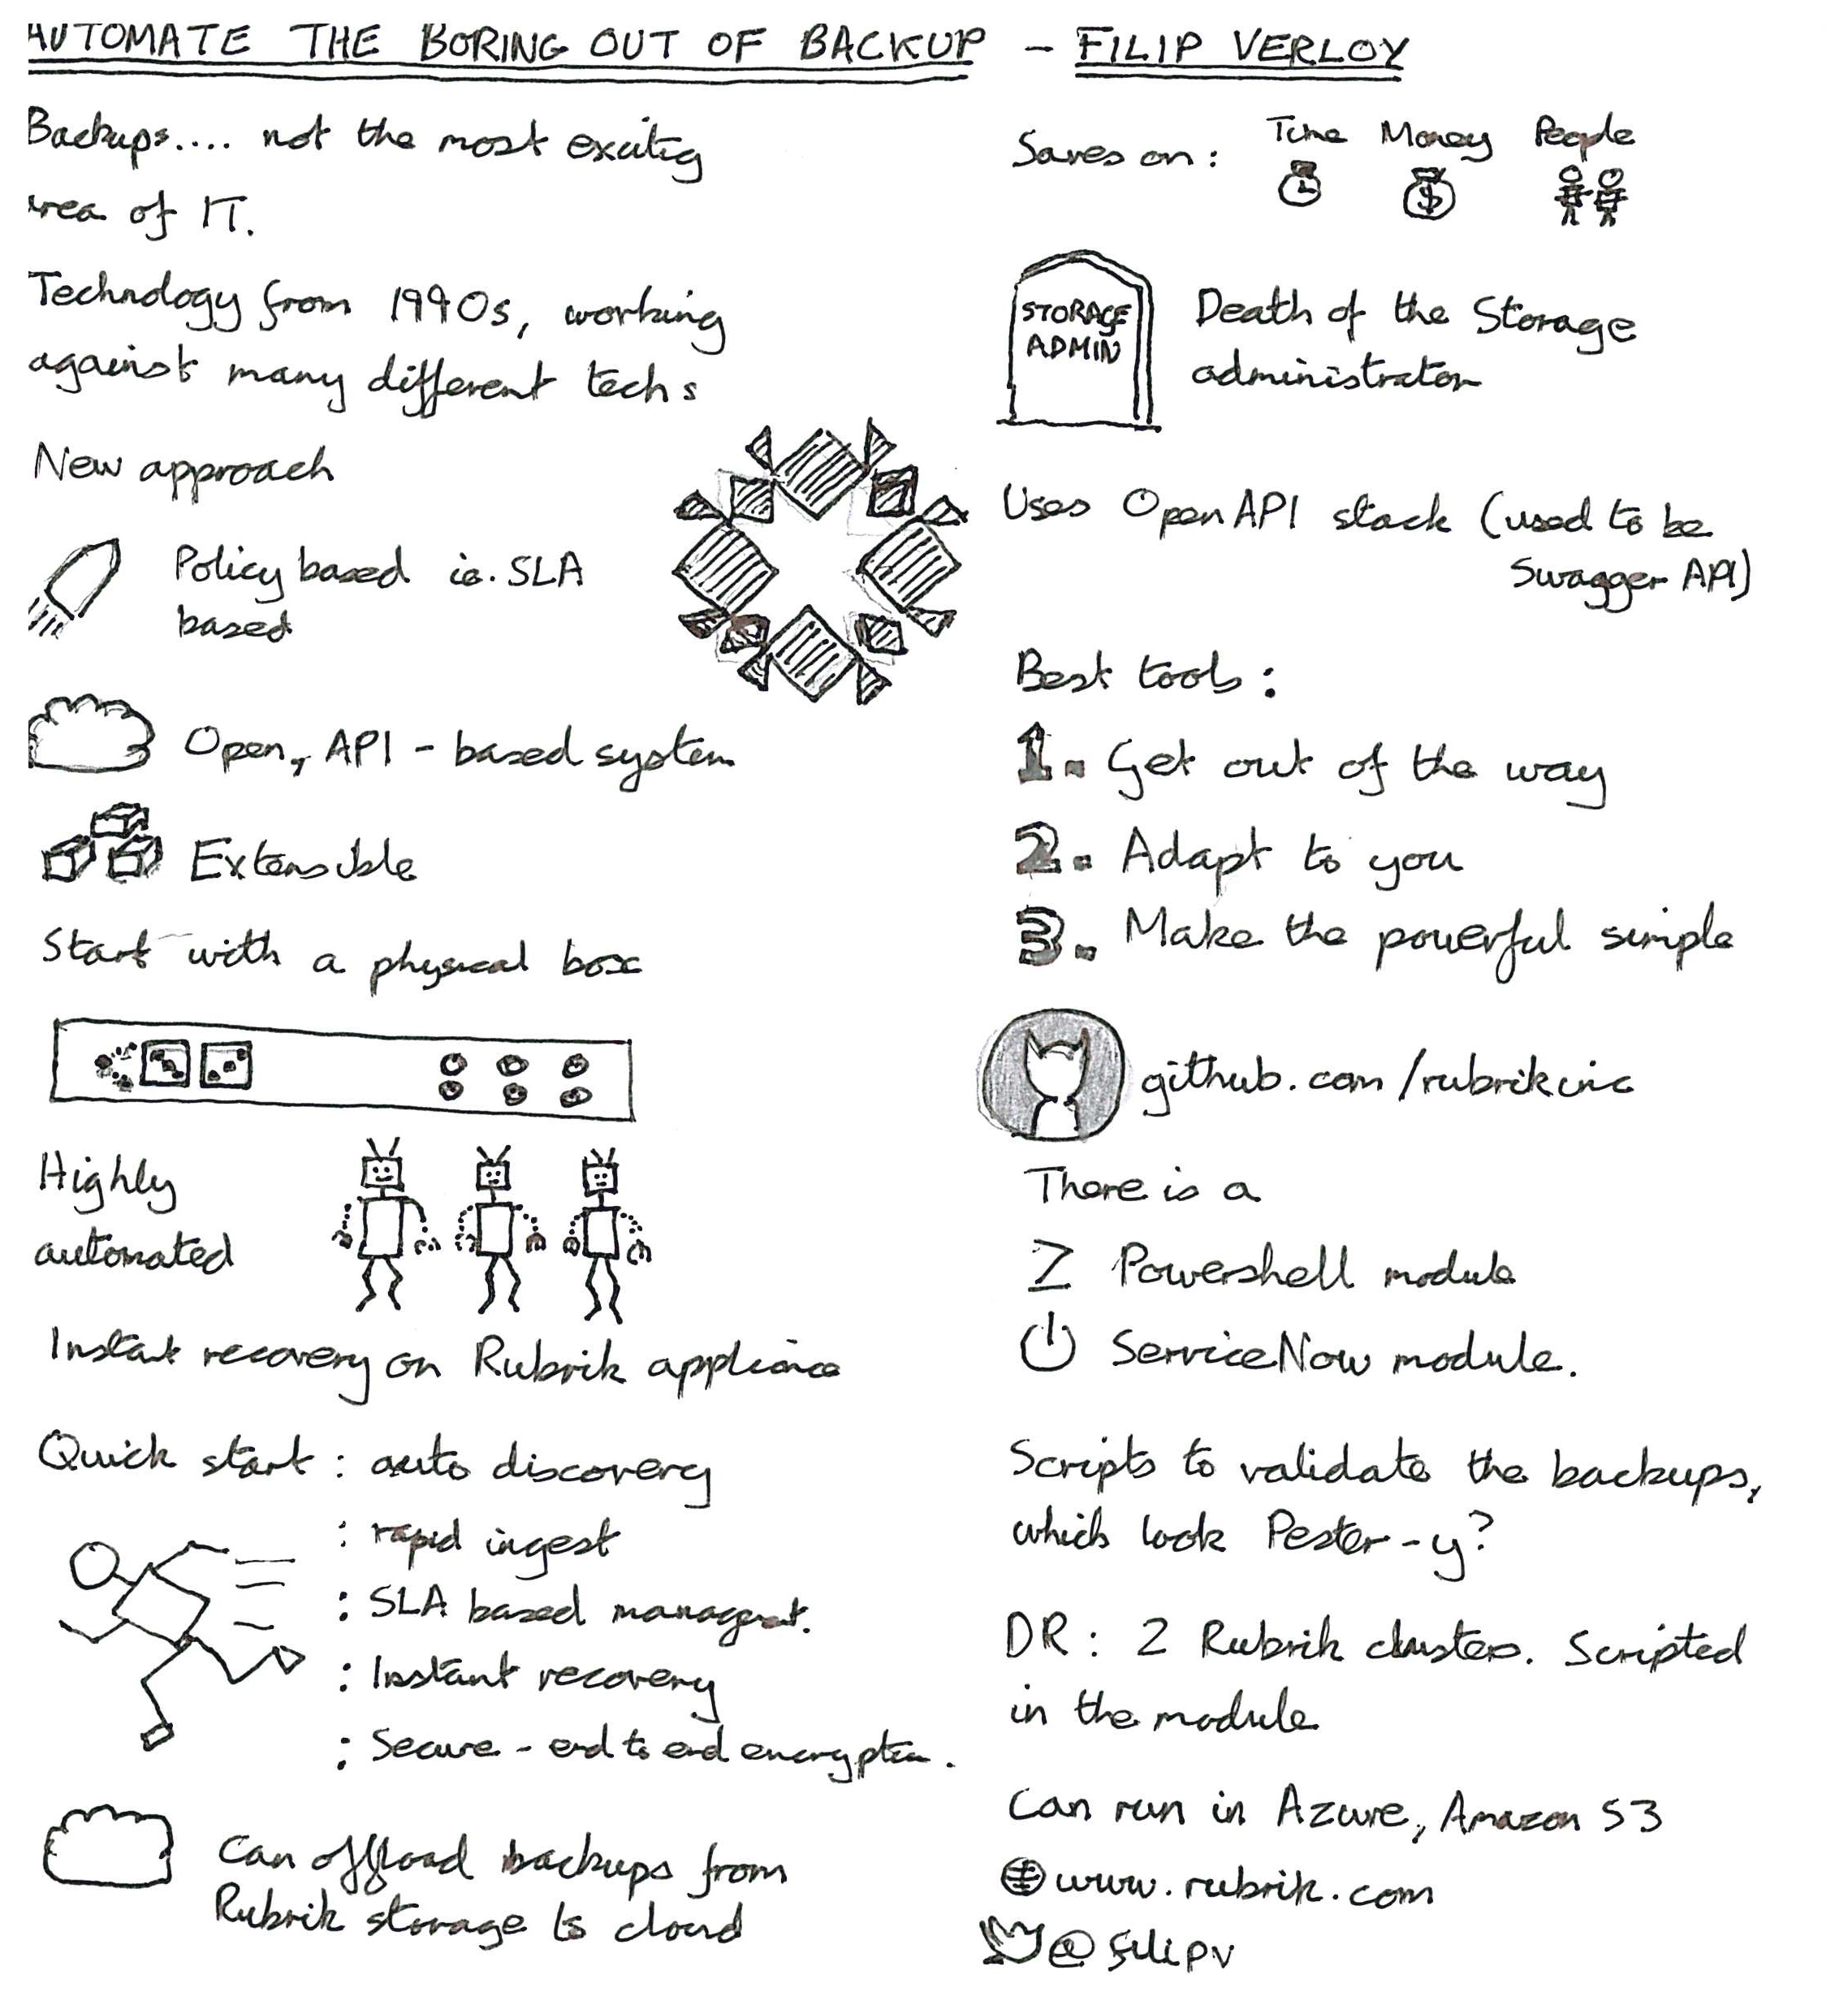 AUTOMATE THE BORING OUT OF BACKUP - FILIP VERLOY
Backups.... not the most exciting
area of IT.
Technology from 1990s, working
against many different techs
New approach
Policy based ie. SLA
based
Open, API - based system
Extensible
Start with a physical box
Highly
automated
Instant recovery on Rubrik appliance
Quick start : auto discovery
: rapid ingest
: SLA based managment.
: Instant recovery
: Secure - end to end encryption.
Can offload backups from
Rubrik storage to cloud
Saves on : Time Money People
$
STORAGE
ADMIN
Death of the Storage
administrator
Uses OpenAPI stack (used to be
Swagger API)
Best tools :
1. Get out of the way
2. Adapt to you
3. Make the powerful simple
github.com/rubrikinc
There is a
Powershell module
ServiceNow module.
Scripts to validate the backups,
which look Pester-y?
DR : 2 Rubrik clusters. Scripted
in the module
Can run in Azure, Amazon S3
www.rubrik.com
@filipv